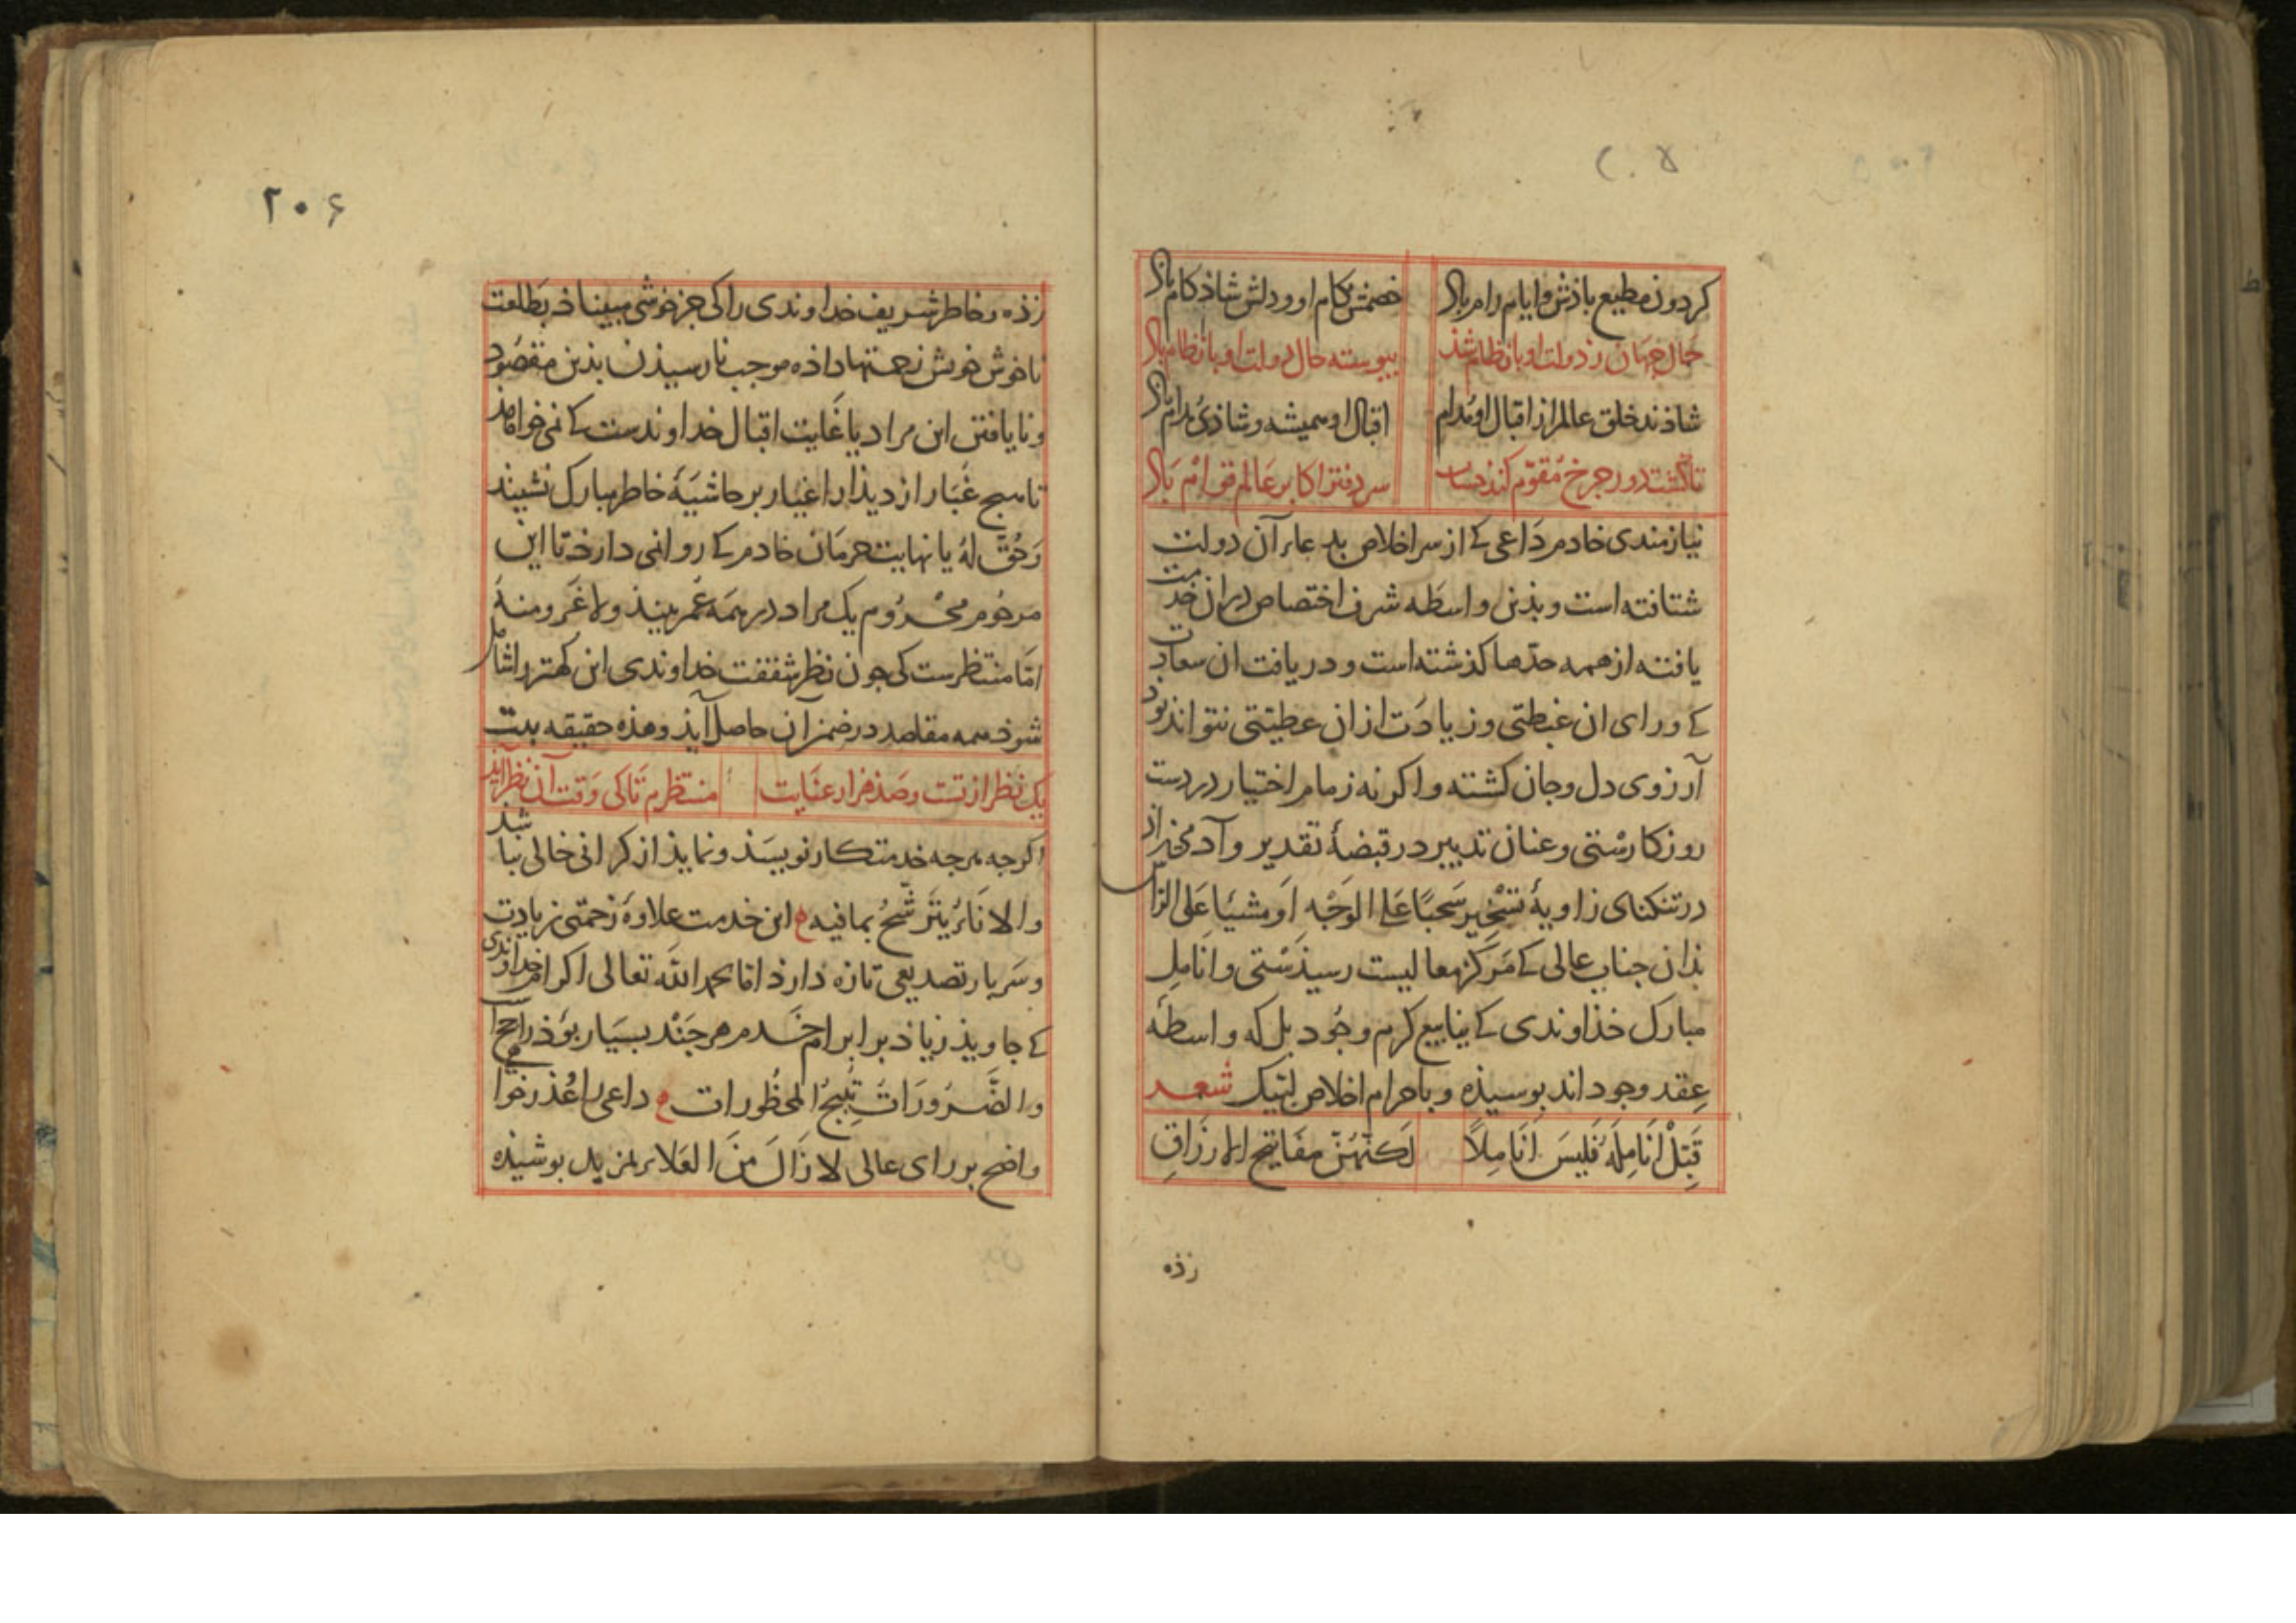 ۲۰۵
کردون مطیع باذش و ایام رام باد خصمش بکام او و دلش شاذکام باد
حال جهان ز دولت او با نظام شذ بیوسته حال دولت او با نظام باد
شاذند خلق عالم از اقبال او مدام اقبال او همیشه و شاذی مدام باد
تا کشت دور جرخ مقوم کنند سر دفتر اکابر عالم قوام باد
نیازمندی خادم داعی کے از سر اخلاص بدعاء آن دولت
شتافته است و بذین واسطه شرف اختصاص دران خدمت
یافته از همه حدها کذشته است و دریافت ان سعادت
کے ورای ان غبطتی و زیادت ازان عطیتی نتواند بود
آرزوی دل و جان کشته و اکر نه زمام اختیار در دست
روزکارستی و عنان تدبیر در قبضۀ تقدیر و آدمی‌زاد
در تنکنای زاویۀ تسخیر سَحبًا عَلی الوَجْهِ اَو مَشیًا عَلی الرّاس
بذان جناب عالی کے مَرکز معالیست رسیذستی و انامِل
مبارک خذاوندی کے ینابیع کرم و جُود بل که واسطۀ
عِقد وجود اند بوسیذه و باحرام اخلاص لبیک شعر
قَبِّلْ اَنَامِلَهُ فَلَیسَ اَنَامِلاً لٰکِنَّهُنَّ مفَاتیحُ الارزَاقِ
زذه
۲۰۶
زذه و خاطر شریف خداوندی را کی جز خوشی مبیناذ بطلعت
ناخوش خویش زحمتها داذه موجب نارسیذن بذین مقصُود
و نایافتن این مراد یا غایت اقبال خداوندست کے نمی خواهذ
تا هیج غُبار از دیذار اغیار بر حاشیَۀ خاطر مبارک نشیند
وَحُقَّ لَهُ یا نهایت حرمَان خادم کے روا نمی دارذ تا این
مرحُوم محرُوم یک مراد در همَه عُمر بینذ ولا غَرو منهُ
امّا منتظرست کی جون نظر شفقت خداوندی این کهتر را شامل
شوذ همه مقاصد در ضمن آن حاصل آیذ و هذه حقیقه بیت
یک نظر از تست و صذ هزار عنایت منتظرم تا کی وَقت آن نظر آیذ
اکرجه هرجه خدمتکار نویسَذ و نمایذ از کرانی خالی نباشد
والاناءُ یَتَرَشَّحُ بمافیه این خدمت علاوۀ زحمتی زیادت
و سَربار تصدیعی تازه دارذ اما بحمد الله تعالی اکرام خداوندی
کے جاویذ زیاذ بر ابرام خَدم هر جَنْد بسیَار بوَذ راجح است
والضَّرُورَاتُ تُبِیحُ المحظُورات داعی را عُذرخوا
واضح بر رای عالی لا زَالَ مِنَ العَلاءِ بمزید بوشیذه